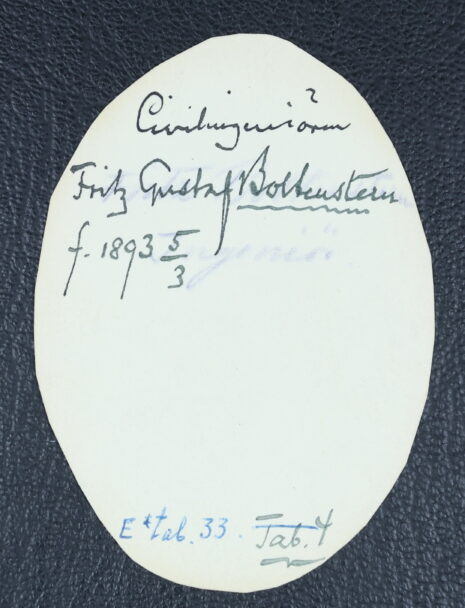 Civilingeniören
Fritz Gustaf Boltenstern
f. 1893 5/3
Ingeniör
E * tab. 33. Tab. 4